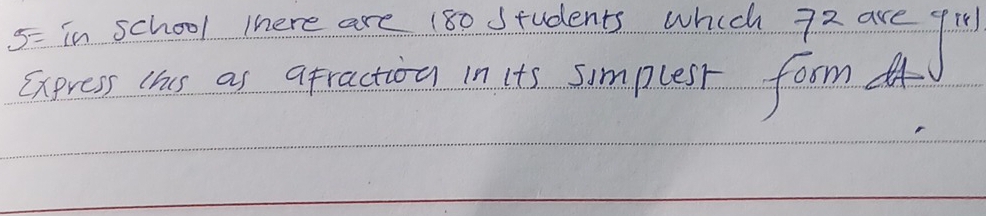 5= in school there are 180 students which 72 are girl
Express this as afraction in its simplest form